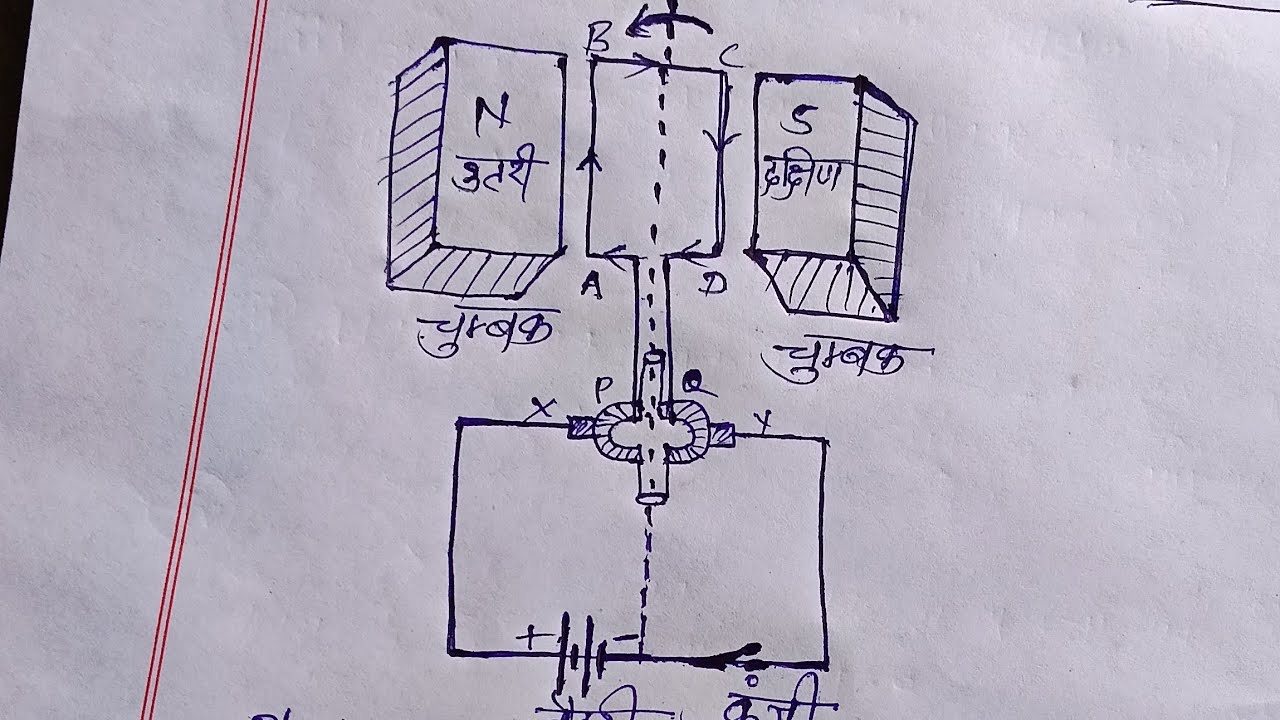 B
C
N
उतरी
S
दक्षिण
A
D
चुम्बक
चुम्बक
P
Q
X
Y
+
−
कुंजी